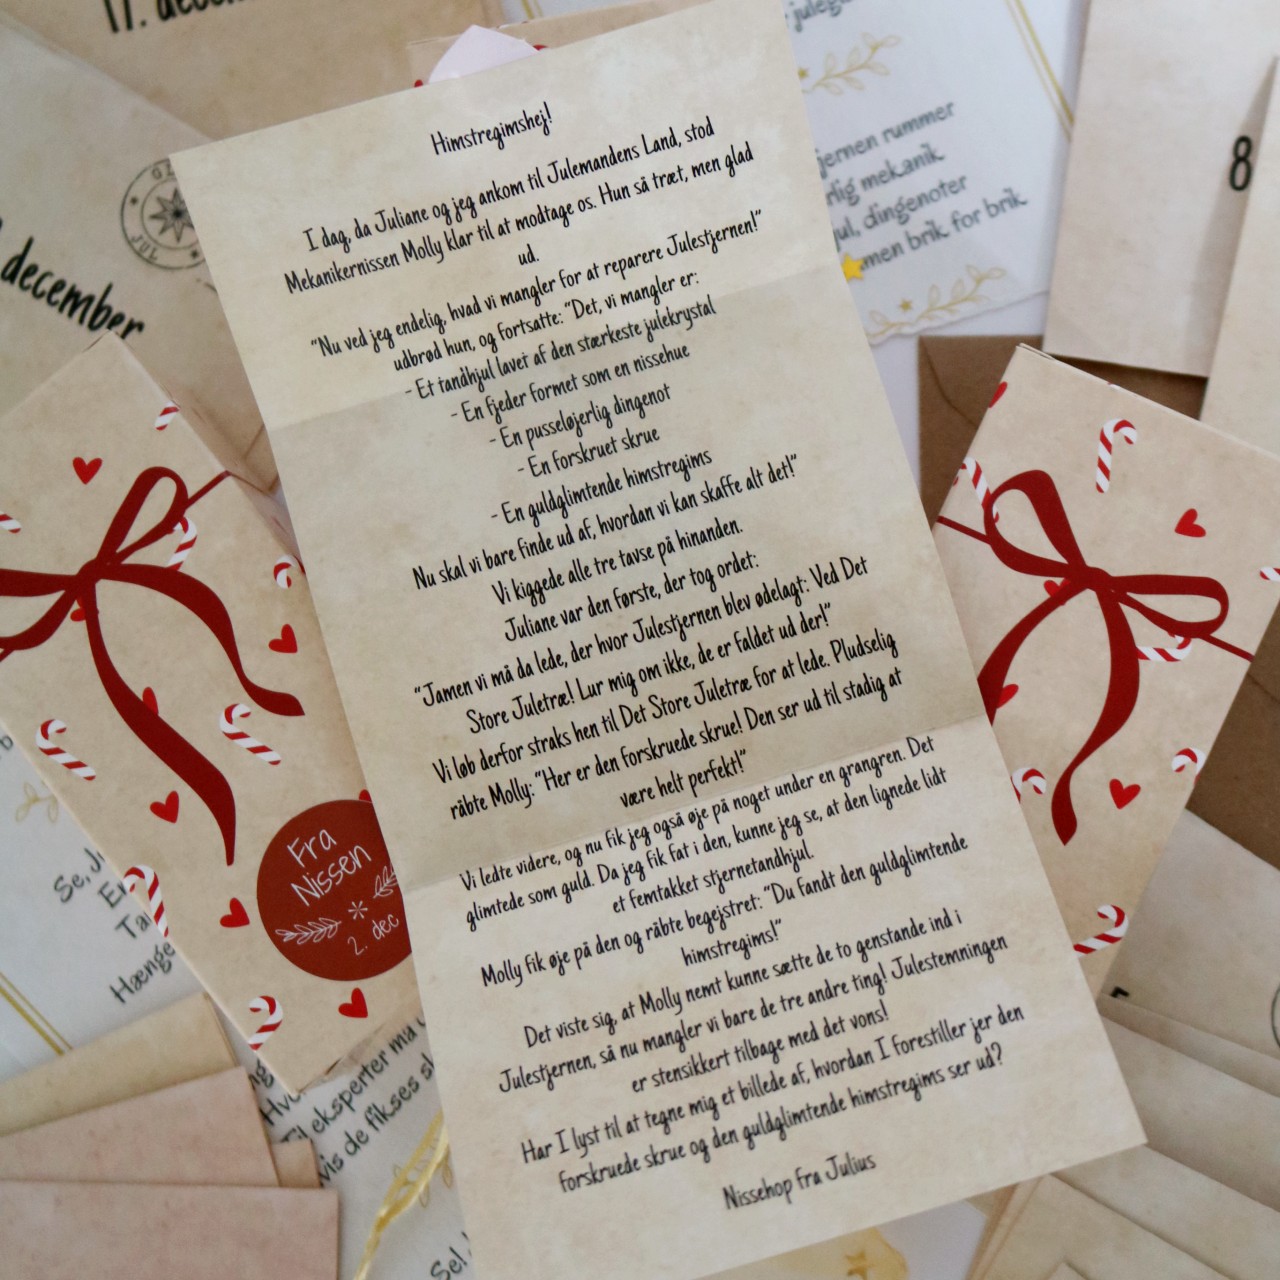 17. december
GL
JUL
december
julegu
jernen rummer
rlig mekanik
jul, dingenoter
men brik for brik
8
Himstregimshej!
I dag, da Juliane og jeg ankom til Julemandens Land, stod
Mekanikernissen Molly klar til at modtage os. Hun så træt, men glad
ud.
"Nu ved jeg endelig, hvad vi mangler for at reparere Julestjernen!"
udbrød hun, og fortsatte: "Det, vi mangler er:
- Et tandhjul lavet af den stærkeste julekrystal
- En fjeder formet som en nissehue
- En pusseløjerlig dingenot
- En forskruet skrue
- En guldglimtende himstregims
Nu skal vi bare finde ud af, hvordan vi kan skaffe alt det!"
Vi kiggede alle tre tavse på hinanden.
Juliane var den første, der tog ordet:
"Jamen vi må da lede, der hvor Julestjernen blev ødelagt: Ved Det
Store Juletræ! Lur mig om ikke, de er faldet ud der!"
Vi løb derfor straks hen til Det Store Juletræ for at lede. Pludselig
råbte Molly: "Her er den forskruede skrue! Den ser ud til stadig at
være helt perfekt!"
Vi ledte videre, og nu fik jeg også øje på noget under en grangren. Det
glimtede som guld. Da jeg fik fat i den, kunne jeg se, at den lignede lidt
et femtakket stjernetandhjul.
Molly fik øje på den og råbte begejstret: "Du fandt den guldglimtende
himstregims!"
Det viste sig, at Molly nemt kunne sætte de to genstande ind i
Julestjernen, så nu mangler vi bare de tre andre ting! Julestemningen
er stensikkert tilbage med det vons!
Har I lyst til at tegne mig et billede af, hvordan I forestiller jer den
forskruede skrue og den guldglimtende himstregims ser ud?
Nissehop fra Julius
Fra
Nissen
2. dec
Se, J
Er
Ta
Hænge
eksperter må
vis de fikses sk
Se!